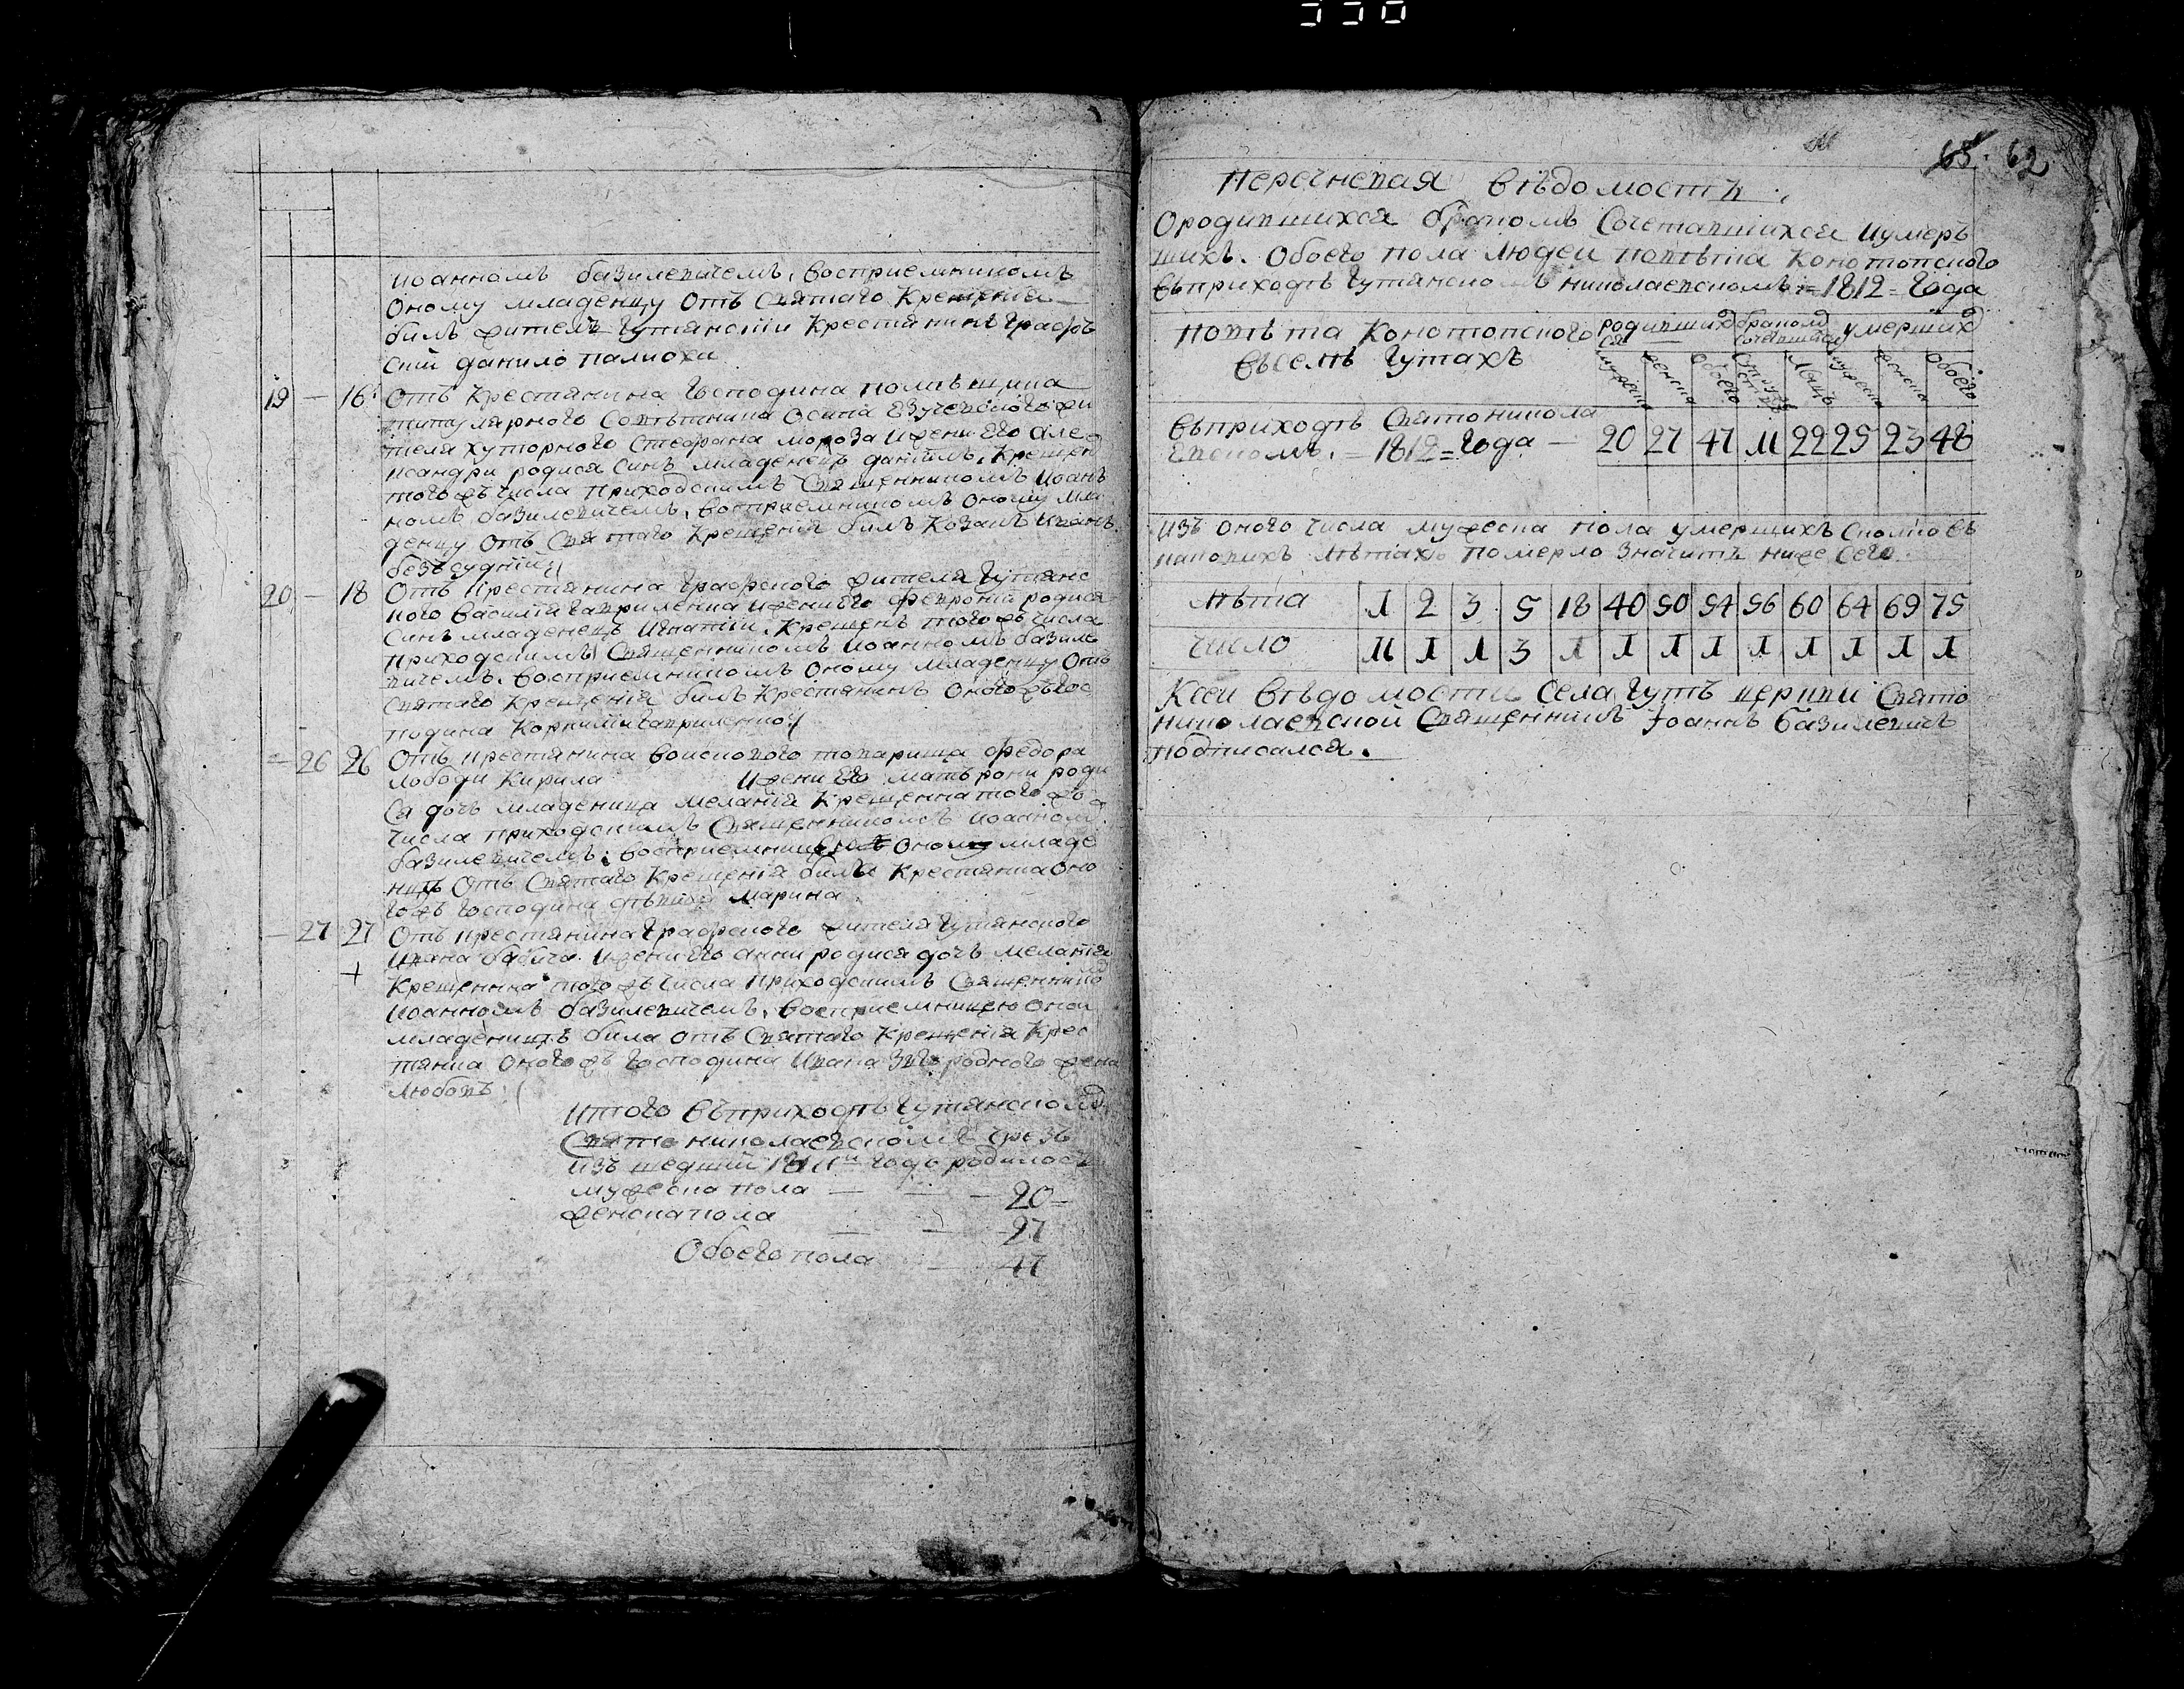 иоанномъ базилевичемъ, восприемникомъ
оному младенцу отъ Святаго Крещенія
билъ житель Гутянскїи Крестянинъ Графъ
скїй данило палюхи
19 — 16 Отъ Крестянина Господина помѣщика
титулярного Совѣтника Осипа жи
теля хуторного Стефана мороза ижени его але
ксандри родися синъ младенецъ данїилъ, Крещен
тогожъ числа приходскимъ Священникомъ иоанъ
номъ базилевичемъ, восприемникомъ оному мла
денцу отъ Святаго Крещенія билъ Козакъ иванъ
безъсуднїи
20 — 18 Отъ крестянина Графского жителя Гутянс
кого василїя гавриленка ижени его февронїи родися
Синъ младенецъ игнатїи, Крещенъ тогожъ числа
приходскимъ Священникомъ иоанномъ базиле
вичемъ, восприемникомъ оному младенцу отъ
Святаго Крещенія билъ Крестянинъ оногожъ Гос
подина Корнилїи гавриленко
— 26 26 Отъ крестянина воискового товариша федора
лободи Кирила ижени его матърони роди
ся дочь младеница меланїя Крещенна тогожъ
числа приходскимъ Священникомъ иоанном
базилевичемъ, восприемницею оному младе
ницѣ отъ Святаго Крещенія била Крестянка оно
гожъ Господина дѣвица марина
— 27 27 Отъ крестянина Графского жителя Гутянского
ивана бабича ижени его анни родися дочь меланїя
+ Крещенна тогожъ числа приходскимъ Священнико
иоанномъ базилевичемъ, восприемницею онои
младеницѣ била отъ Святаго Крещенія Крес
тянка оногожъ Господина ивана жена
любовъ
Итого въприходѣ Гутянском
Свято николаевскомъ чрезъ
изъ шедшїй годъ родилось
мужеска пола — — — 20 =
женска пола — — 27
Обоего пола — 47
65. 62
Перечневая вѣдомость
Ородившихся бракомъ Сочетавшихся иумеръ
шихъ. Обоего пола людеи повѣта Конотопского
въприходѣ Гутянско мъ николаевскомъ = 1812 = Года
повѣта Конотопского родившихъ бракомъ умершихъ
ся — сочетавшихся
въселѣ Гутахъ мужеска женска обоего мужеска женска обоего
въприходѣ Святоникола
евскомъ. — 1812 = года — 20 27 47 11 22 25 23 48
изъ оного числа мужеска пола умершихъ сколко въ
какокихъ лѣтахъ померло значитъ ниже сего.
лѣта 1 2 3 5 18 40 50 54 56 60 64 69 75
число 11 1 1 3 1 1 1 1 1 1 1 1 1
Ксеи вѣдомости Села Гутъ церкви Свято
николаевской Священникъ Іоаннъ базилевичъ
подписался.